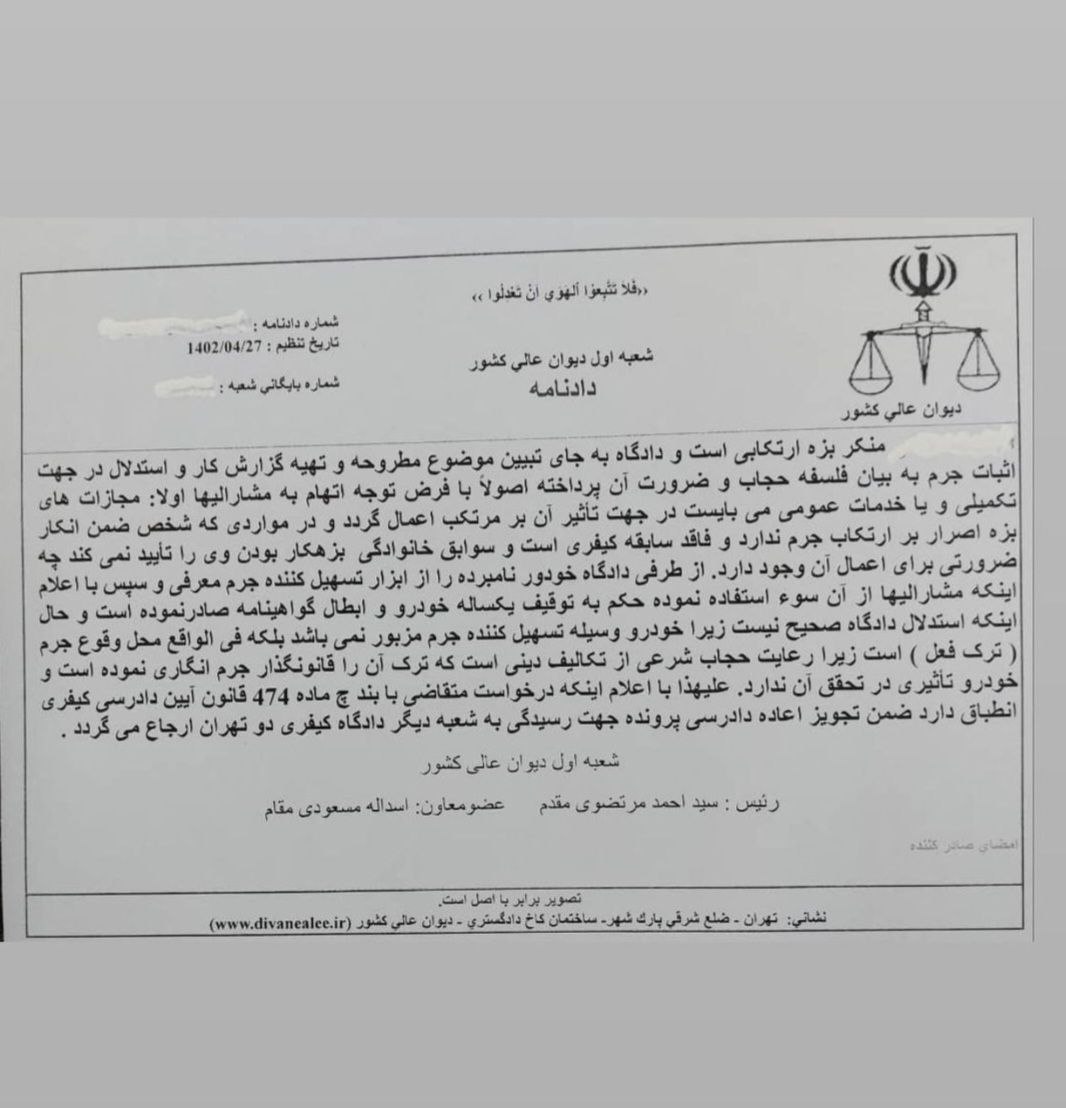 ‹‹فَلاَ تَتَّبِعُوا اَلهَوَي اَنْ تَعْدِلُوا ››
شماره دادنامه :
تاریخ تنظیم : 1402/04/27
شماره بایگاني شعبه :
شعبه اول دیوان عالي کشور
دادنامه
دیوان عالي کشور
منکر بزه ارتکابی است و دادگاه به جای تبیین موضوع مطروحه و تهیه گزارش کار و استدلال در جهت
اثبات جرم به بیان فلسفه حجاب و ضرورت آن پرداخته اصولاً با فرض توجه اتهام به مشارالیها اولا: مجازات های
تکمیلی و یا خدمات عمومی می بایست در جهت تأثیر آن بر مرتکب اعمال گردد و در مواردی که شخص ضمن انکار
بزه اصرار بر ارتکاب جرم ندارد و فاقد سابقه کیفری است و سوابق خانوادگی بزهکار بودن وی را تأیید نمی کند چه
ضرورتی برای اعمال آن وجود دارد. از طرفی دادگاه خودور نامبرده را از ابزار تسهیل کننده جرم معرفی و سپس با اعلام
اینکه مشارالیها از آن سوء استفاده نموده حکم به توقیف یکساله خودرو و ابطال گواهینامه صادرنموده است و حال
اینکه استدلال دادگاه صحیح نیست زیرا خودرو وسیله تسهیل کننده جرم مزبور نمی باشد بلکه فی الواقع محل وقوع جرم
( ترک فعل ) است زیرا رعایت حجاب شرعی از تکالیف دینی است که ترک آن را قانونگذار جرم انگاری نموده است و
خودرو تأثیری در تحقق آن ندارد. علیهذا با اعلام اینکه درخواست متقاضی با بند چ ماده 474 قانون آیین دادرسی کیفری
انطباق دارد ضمن تجویز اعاده دادرسی پرونده جهت رسیدگی به شعبه دیگر دادگاه کیفری دو تهران ارجاع می گردد .
شعبه اول دیوان عالی کشور
رئیس : سید احمد مرتضوی مقدم عضومعاون: اسداله مسعودی مقام
امضای صادر کننده
تصویر برابر با اصل است.
نشاني: تهران - ضلع شرقي پارك شهر- ساختمان کاخ دادگستري - دیوان عالي کشور (www.divanealee.ir)